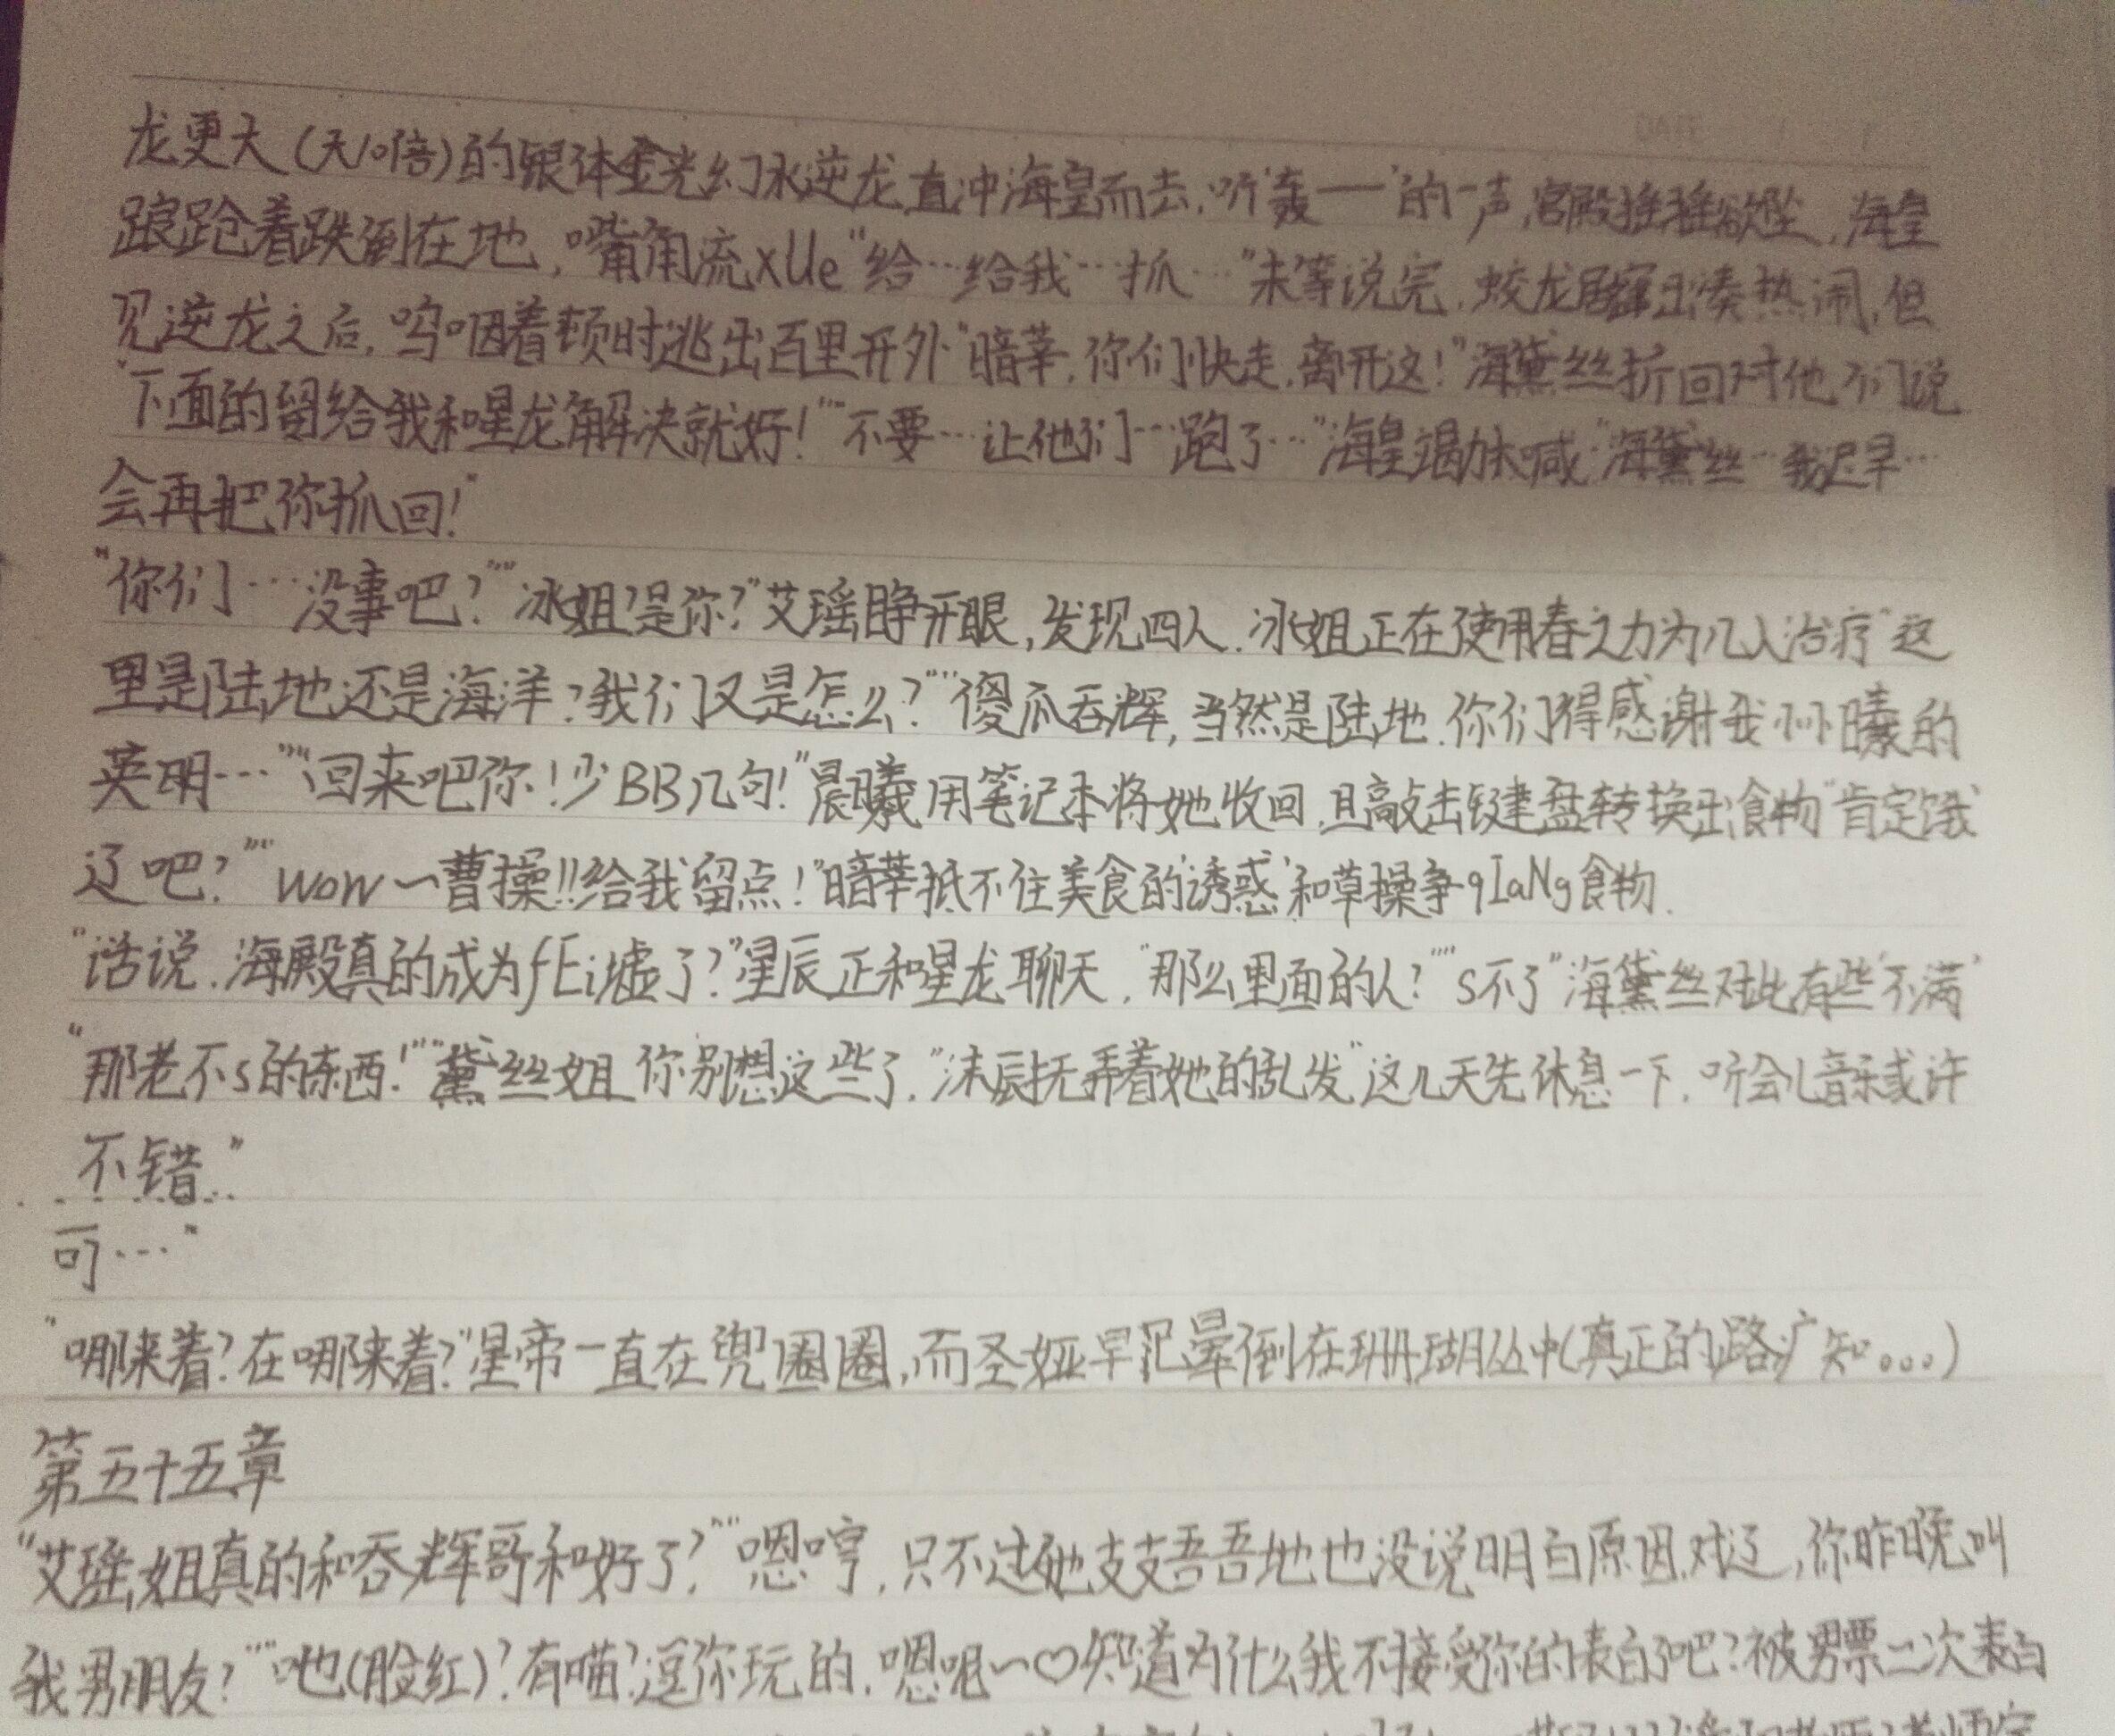 龙更大(大10倍)的银体金光幻水逆龙,直冲海皇而去,听“轰——”的一声,宫殿摇摇欲坠,海皇
踉跄着跌倒在地,嘴角流xUe“给…给我…抓…”未等说完,蛟龙出凑热闹,但
见逆龙之后,呜咽着顿时逃出百里开外“暗莘,你们快走,离开这!”海黛丝折回对他们说
“下面的留给我和星龙解决就好!”“不要…让他们…跑了…”海皇竭力喊“海黛丝…我迟早…
会再把你抓回!”
“你们…没事吧?”“冰姐?是你?”艾瑶睁开眼,发现四人.冰姐正在使用春之力为几人治疗“这
里是陆地还是海洋?我们又是怎么?”“傻瓜吞辉,当然是陆地.你们得感谢我小小曦的
英明…”“回来吧你!少BB几句!”晨曦用笔记本将她收回,且敲击键盘转换出食物“肯定饿
辽吧?”“wow~曹操!!给我留点!”暗莘抵不住美食的‘诱惑’和草操争qIaNg食物.
“话说.海殿真的成为fEi墟了?”星辰正和星龙聊天,“那么里面的人?”“s不了”海黛丝对此有些‘不满’
“那老不s的东西!”“黛丝姐你别想这些了.”沫辰抚弄着她的乱发“这几天先休息一下.听会儿音乐或许
不错.”
可…”
“哪来着?在哪来着?”星帝一直在兜圈圈,而圣娅早已晕倒在珊瑚丛中(真正的路疒知。。。)
第五十五章
“艾瑶姐真的和吞辉哥和好了?”“嗯哼,只不过她支支吾吾地也没说明白原因.对辽,你昨晚叫
我男朋友?”“吔(脸红)?有喵?逗你玩的.嗯呢~♡知道为什么我不接受你的表白了吧?被男票二次表白